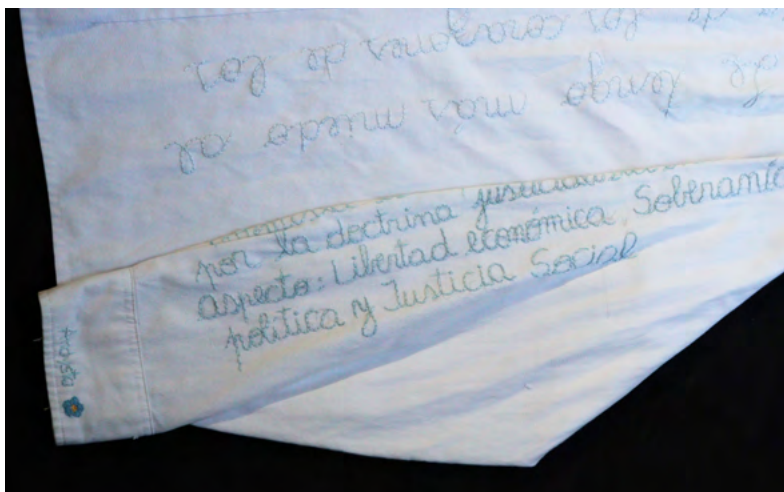 Le tengo más miedo al
de los corazones de los
por la doctrina
aspecto: Libertad económica Soberanía
política y Justicia Social